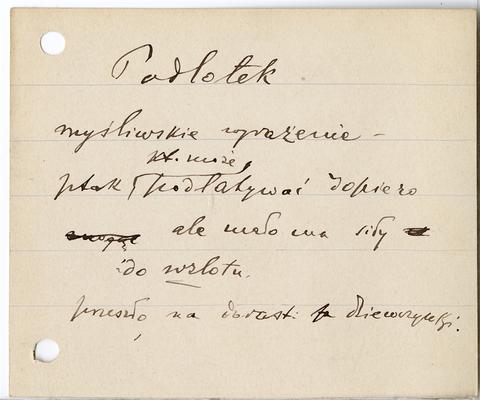 Podlotek
myśliwskie wyrażenie –
kt. może,
ptak podlatywać dopiero
ale mało ma siły
do wzlotu.
przeszło na dorast. dziewczynki.